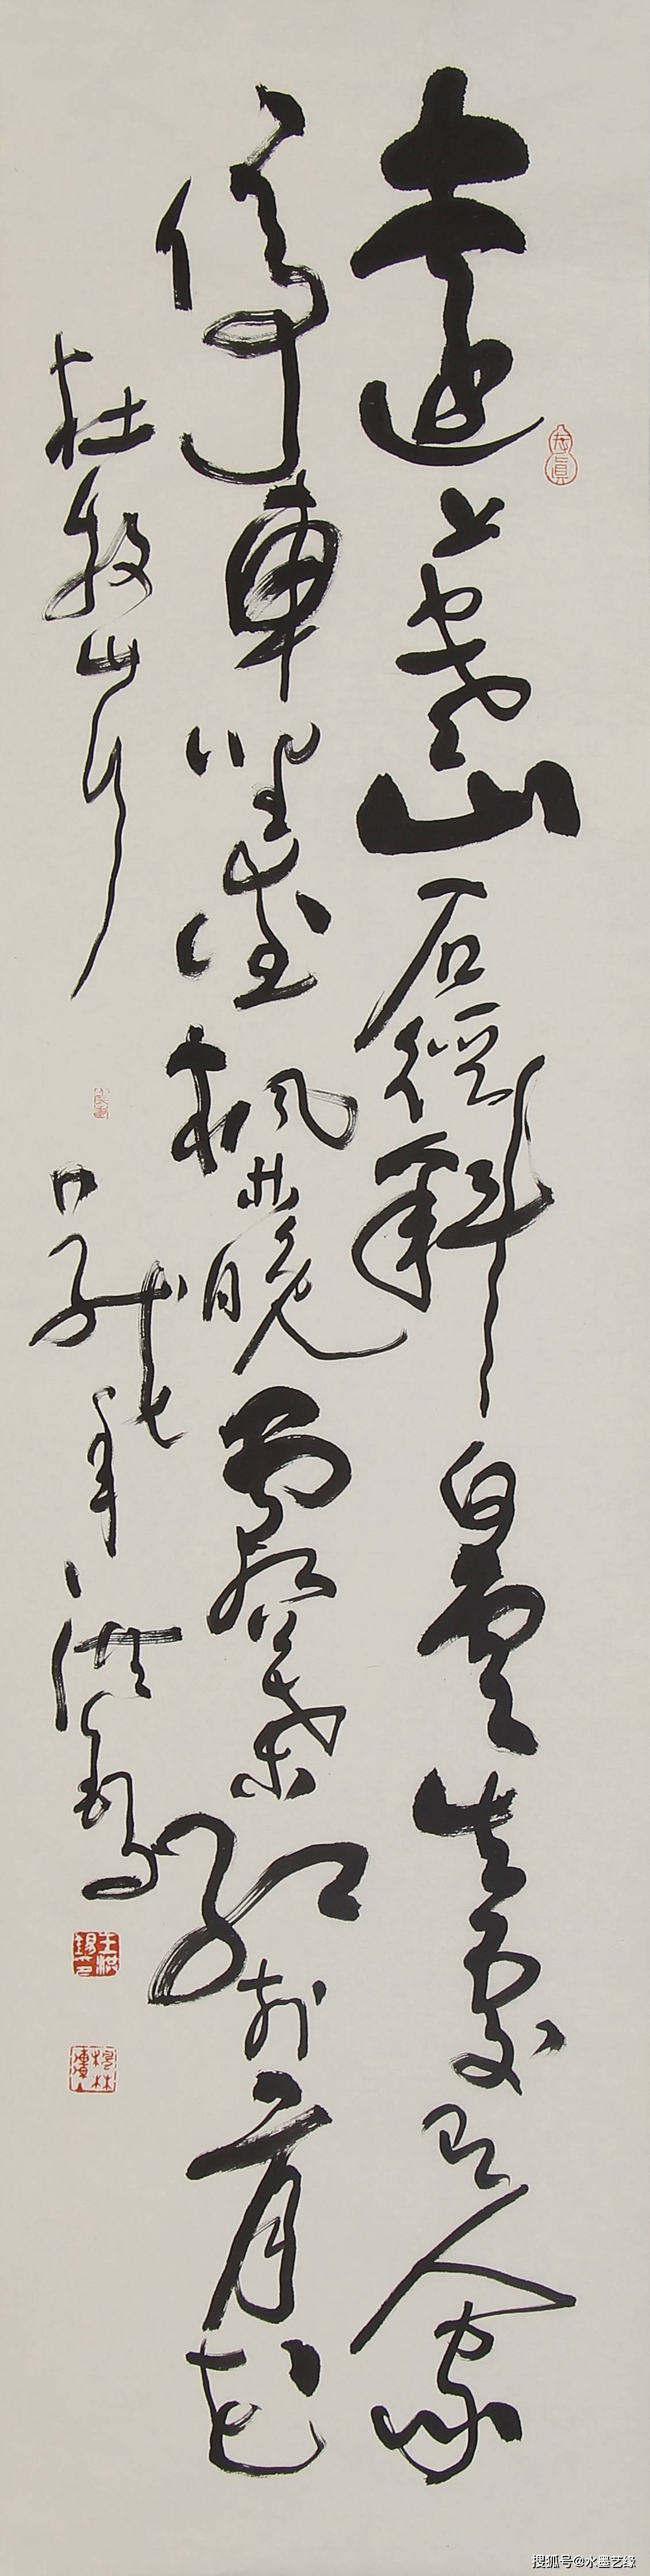 遠上寒山石徑斜白雲生處有人家
停車坐愛楓林晚霜葉紅於二月花
杜牧山行
搜狐号@水墨艺缘